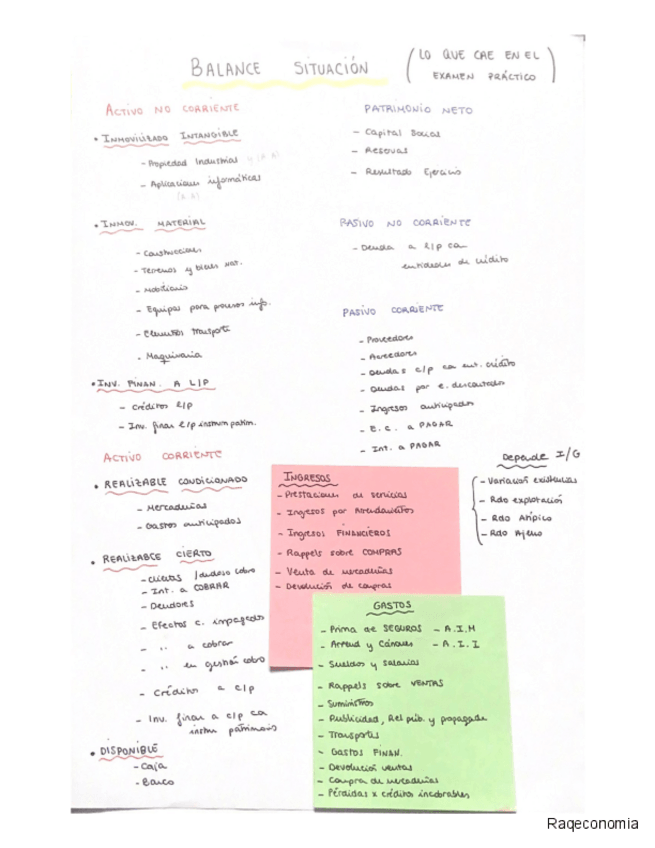 BALANCE SITUACIÓN
(LO QUE CAE EN EL
EXAMEN PRÁCTICO)
ACTIVO NO CORRIENTE
• INMOVILIZADO INTANGIBLE
- Propiedad Industrial y (A.A)
- Aplicaciones informáticas
(A.A)
• INMOV. MATERIAL
- Construcciones
- Terrenos y bienes nat.
- Mobiliario
- Equipos para procesos info.
- Elementos transporte
- Maquinaria
• INV. FINAN. A L/P
- Créditos l/p
- Inv. finan l/p instrum patrim.
ACTIVO CORRIENTE
• REALIZABLE CONDICIONADO
- Mercaderías
- Gastos anticipados
• REALIZABLE CIERTO
- Clientes / dudoso cobro
- Int. a COBRAR
- Deudores
- Efectos c. impagados
- ,, a cobrar
- ,, en gestión cobro
- Créditos a c/p
- Inv. finan a c/p en
instrum patrimonio
• DISPONIBLE
- Caja
- Banco
PATRIMONIO NETO
- Capital Social
- Reservas
- Resultado Ejercicio
PASIVO NO CORRIENTE
- Deuda a l/p con
entidades de crédito
PASIVO CORRIENTE
- Proveedores
- Acreedores
- Deudas c/p con ent. crédito
- Deudas por e. descontados
- Ingresos anticipados
- E.C. a PAGAR
- Int. a PAGAR
Depende I/G
- Variación existencias
- Rdo explotación
- Rdo Atípico
- Rdo Ajeno
INGRESOS
- Prestaciones de servicios
- Ingresos por Arrendamientos
- Ingresos FINANCIEROS
- Rappels sobre COMPRAS
- Venta de mercaderías
- Devolución de compras
GASTOS
- Prima de SEGUROS - A.I.M
- Arrend y Cánones - A.I.I
- Sueldos y salarios
- Rappels sobre VENTAS
- Suministros
- Publicidad, Rel púb. y propaganda
- Transportes
- Gastos FINAN.
- Devolución ventas
- Compra de mercaderías
- Pérdidas x créditos incobrables
Raqeconomia